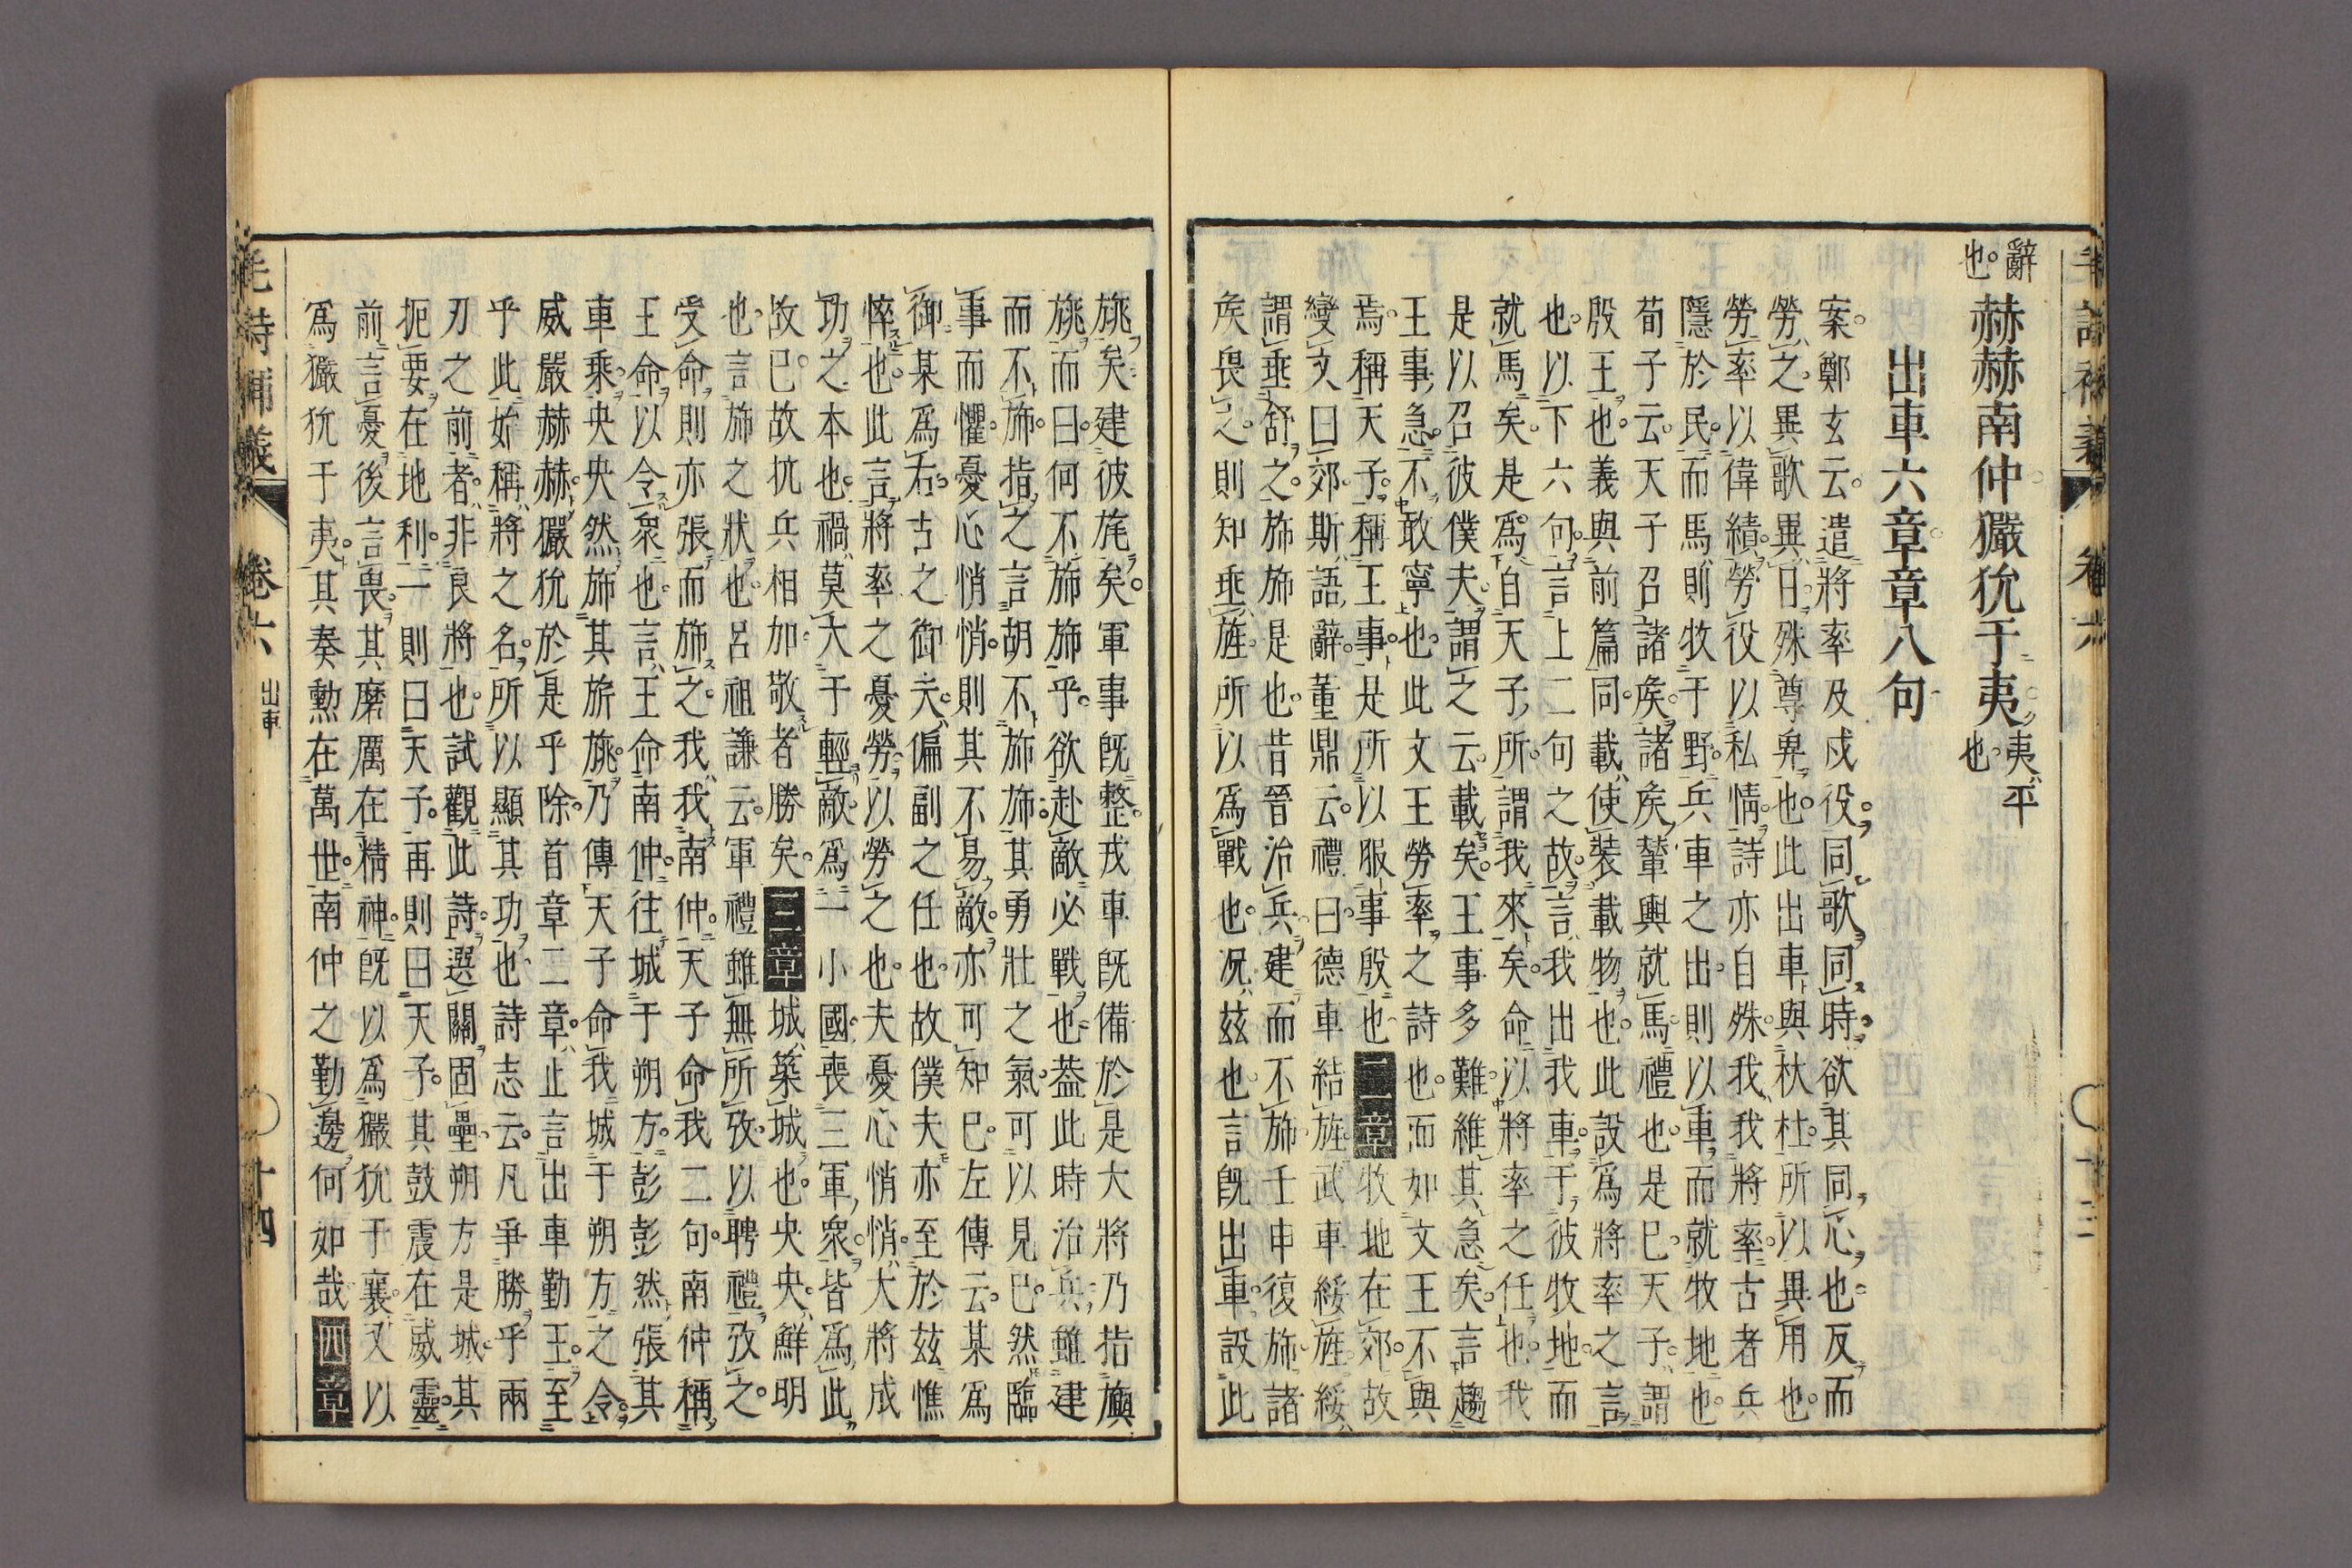 毛詩補義 卷六 十三
辭也。赫赫南仲玁狁于夷。夷ハ平也
出車六章章八句
案。鄭玄云。遣將率及戍役。同歌同時。欲其同心也。反而
勞之異歌異日。殊尊卑也。此出車與杕杜。所以異用也。
勞率以偉績。勞役以私情。詩亦自殊。我我將率。古者兵
隱於民。而馬則牧于野。兵車之出。則以車而就牧地也。
荀子云。天子召諸矦。諸矦輦輿就馬。禮也。是巳。天子謂
殷王也。義與前篇同。載使裝載物也。此設爲將率之言
也。以下六句。言上二句之故。言我出我車。于彼牧地。而
就馬矣。是爲自天子所。謂我來矣。命以將率之任也。我
是以召彼僕夫。謂之云。載矣。王事多難。維其急矣。言趨
王事急。不敢寧也。此文王勞率之詩也。而如文王不與
焉。稱天子。稱王事。是所以服事殷也。二章牧地在郊。故
變文曰郊。斯語辭。董鼎云。禮曰。德車結旌。武車綏旌。綏
謂垂舒之。斾斾是也。昔晉治兵。建而不斾。壬申復斾。諸
矦畏之。則知垂旌。所以爲戰也。況茲也。言既出車。設此
旐矣。建彼旄矣。軍事旣整。戎車旣備。於是大將乃指旟
旐而曰。何不斾斾乎。欲赴敵必戰也。葢此時治兵。雖建
而不斾。指之言胡不斾斾。其勇壯之氣。可以見巳。然臨
事而懼。憂心悄悄。則其不易敵。亦可知巳。左傳云。某爲
御某爲右。古之御夫。偏副之任也。故僕夫亦至於茲憔
悴也。此言將率之憂勞。以勞之也。夫憂心悄悄。大將成
功之本也。禍莫大于輕敵。爲一小國。喪三軍衆。皆爲此
故巳。故抗兵相加。敬者勝矣。三章城築城也。央央鮮明
也。言斾之狀也。呂祖謙云。軍禮雖無所攷。以聘禮攷之。
受命則亦張而斾之。我我南仲。天子命我二句。南仲稱
王命以令衆也。言王命南仲。往城于朔方。彭彭然張其
車乘。央央然斾其旂旐。乃傳天子命我城于朔方之令。
威嚴赫赫。玁狁於是乎除。首章二章。止言出車勤王。至
乎此。始稱將之名。所以顯其功也。詩志云。凡爭勝乎兩
刃之前者。非良將也。試觀此詩。選關固壘。朔方是城。其
扼要在地利。一則曰天子。再則曰天子。其鼓震在威靈。
前言憂。後言畏。其磨厲在精神。旣以爲玁狁于襄。又以
爲玁狁于夷。其奏勲在萬世。南仲之勤邊何如哉。四章
毛詩補義 卷六 出車 十四